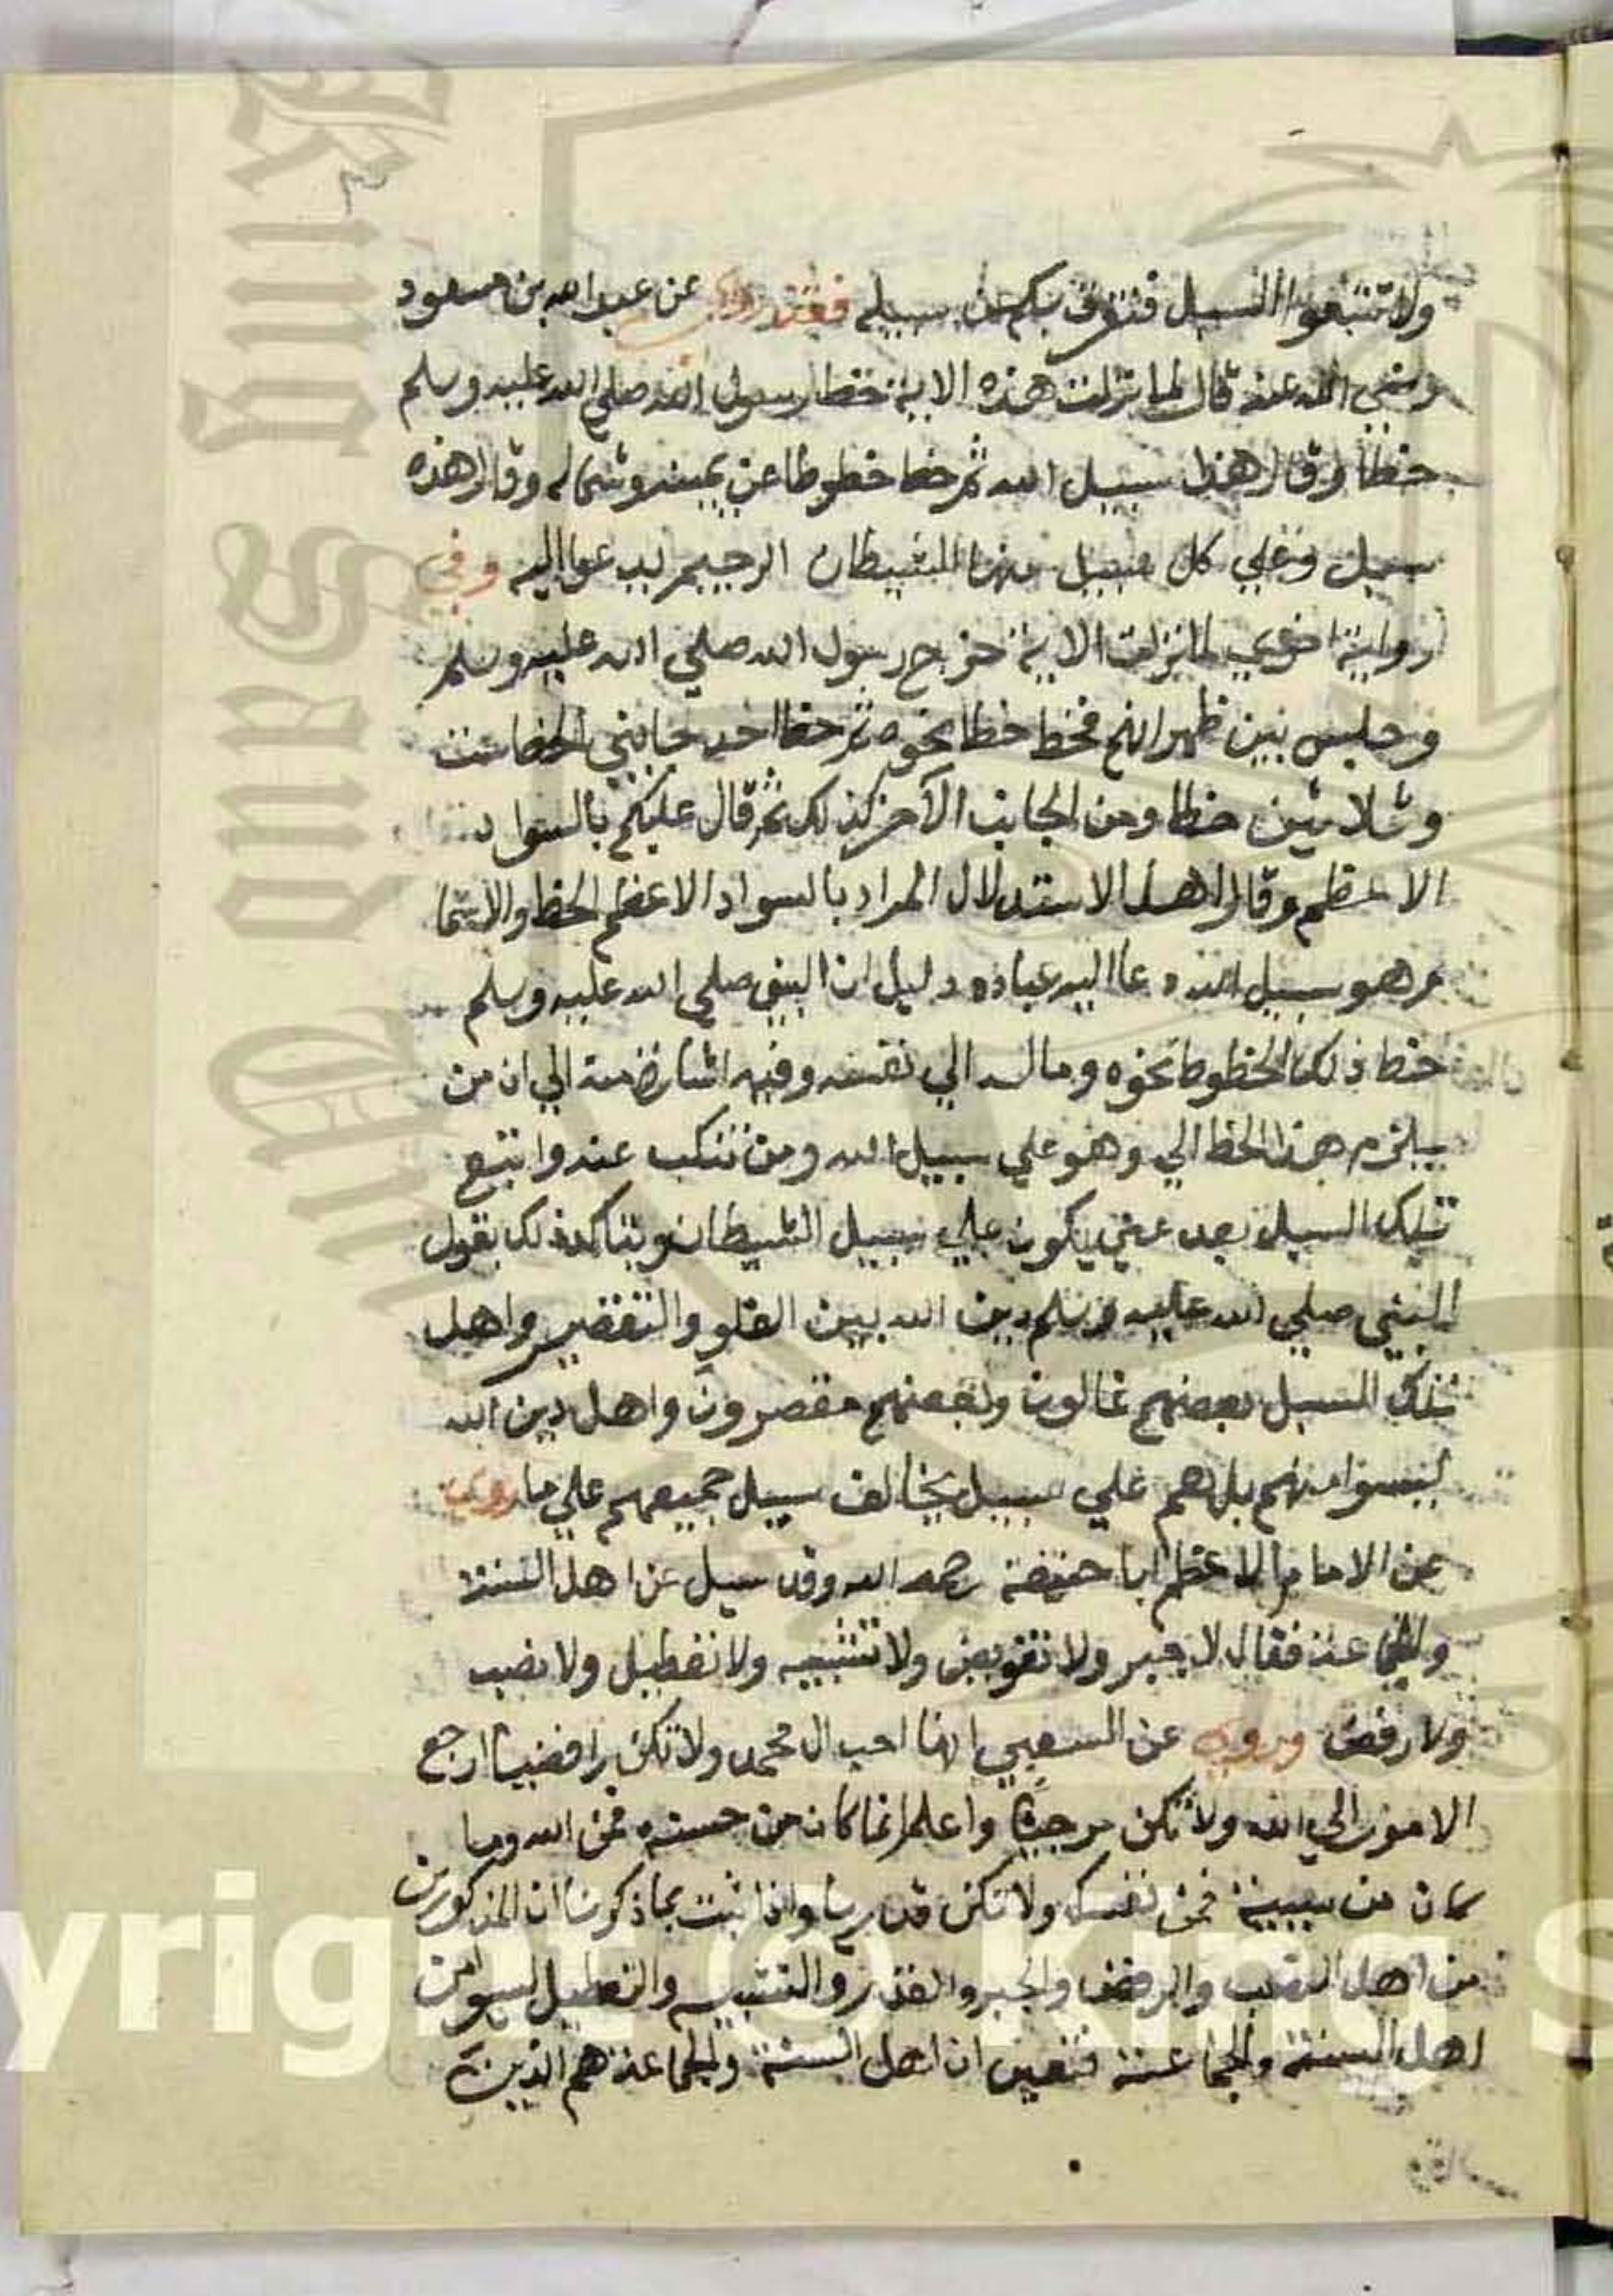 ولا تتبعوا السبل فتفرق بكم عن سبيله فقد روي عن عبد الله بن مسعود
رضي الله عنه قال لما نزلت هذه الاية خط رسول الله صلي الله عليه وسلم
خطا وقال هذا سبيل الله ثم خط خطوطا عن يمينه وشماله وقال هذه
سبل وعلي كل سبيل منها الشيطان الرجيم يدعوا اليه وفي
رواية اخري لما نزلت الاية خرج رسول الله صلي الله عليه وسلم
وجلس بين ظهرانهم فخط خطا نحوه ثم خط احد جانبي الخط ست
وثلاثين خطا ومن الجانب الآخر كذلك ثم قال عليكم بالسواد
الاعظم وقال اهل الاستدلال المراد بالسواد الاعظم الخط والاتما
م هو سبيل الله دعا اليه عباده دليل ان النبي صلي الله عليه وسلم
خط ذلك الخطوط نحوه ومال الي نفسه وفيه اشارة منه الي ان من
يلزم هذا الخط الي وهو علي سبيل الله ومن تنكب عنه واتبع
تلك السبل بعد عني يكون علي سبيل الشيطان ويتاكد ذلك بقول
النبي صلي الله عليه وسلم دين الله بين الغلو والتقصير واهل
تلك السبل بعضهم غالون وبعضهم مقصرون واهل دين الله
ليسوا منهم بل هم علي سبيل يخالف سبيل جميعهم علي ما روي
عن الامام الاعظم ابا حنيفة رحمه الله وقد سيل عن اهل السنة
والجماعة فقال لا جبر ولا تفويض ولا تشبيه ولا تعطيل ولا نصب
ولا رفض وروي عن الشعبي انما احب ال محمد ولا تكن رافضيا ارجع
الامور الي الله ولا تكن مرجئا واعلم انما كان من حسنه فمن الله وما
كان من سيية فمن نفسك ولا تكن قدريا واذا ثبت بما ذكرنا ان المذكورين
من اهل النصب والرفض والجبر والقدر والتشبيه والتعطيل ليسوا من
اهل السنة والجماعة فتعين ان اهل السنة والجماعة هم الذين
King Saud University
Copyright © King S